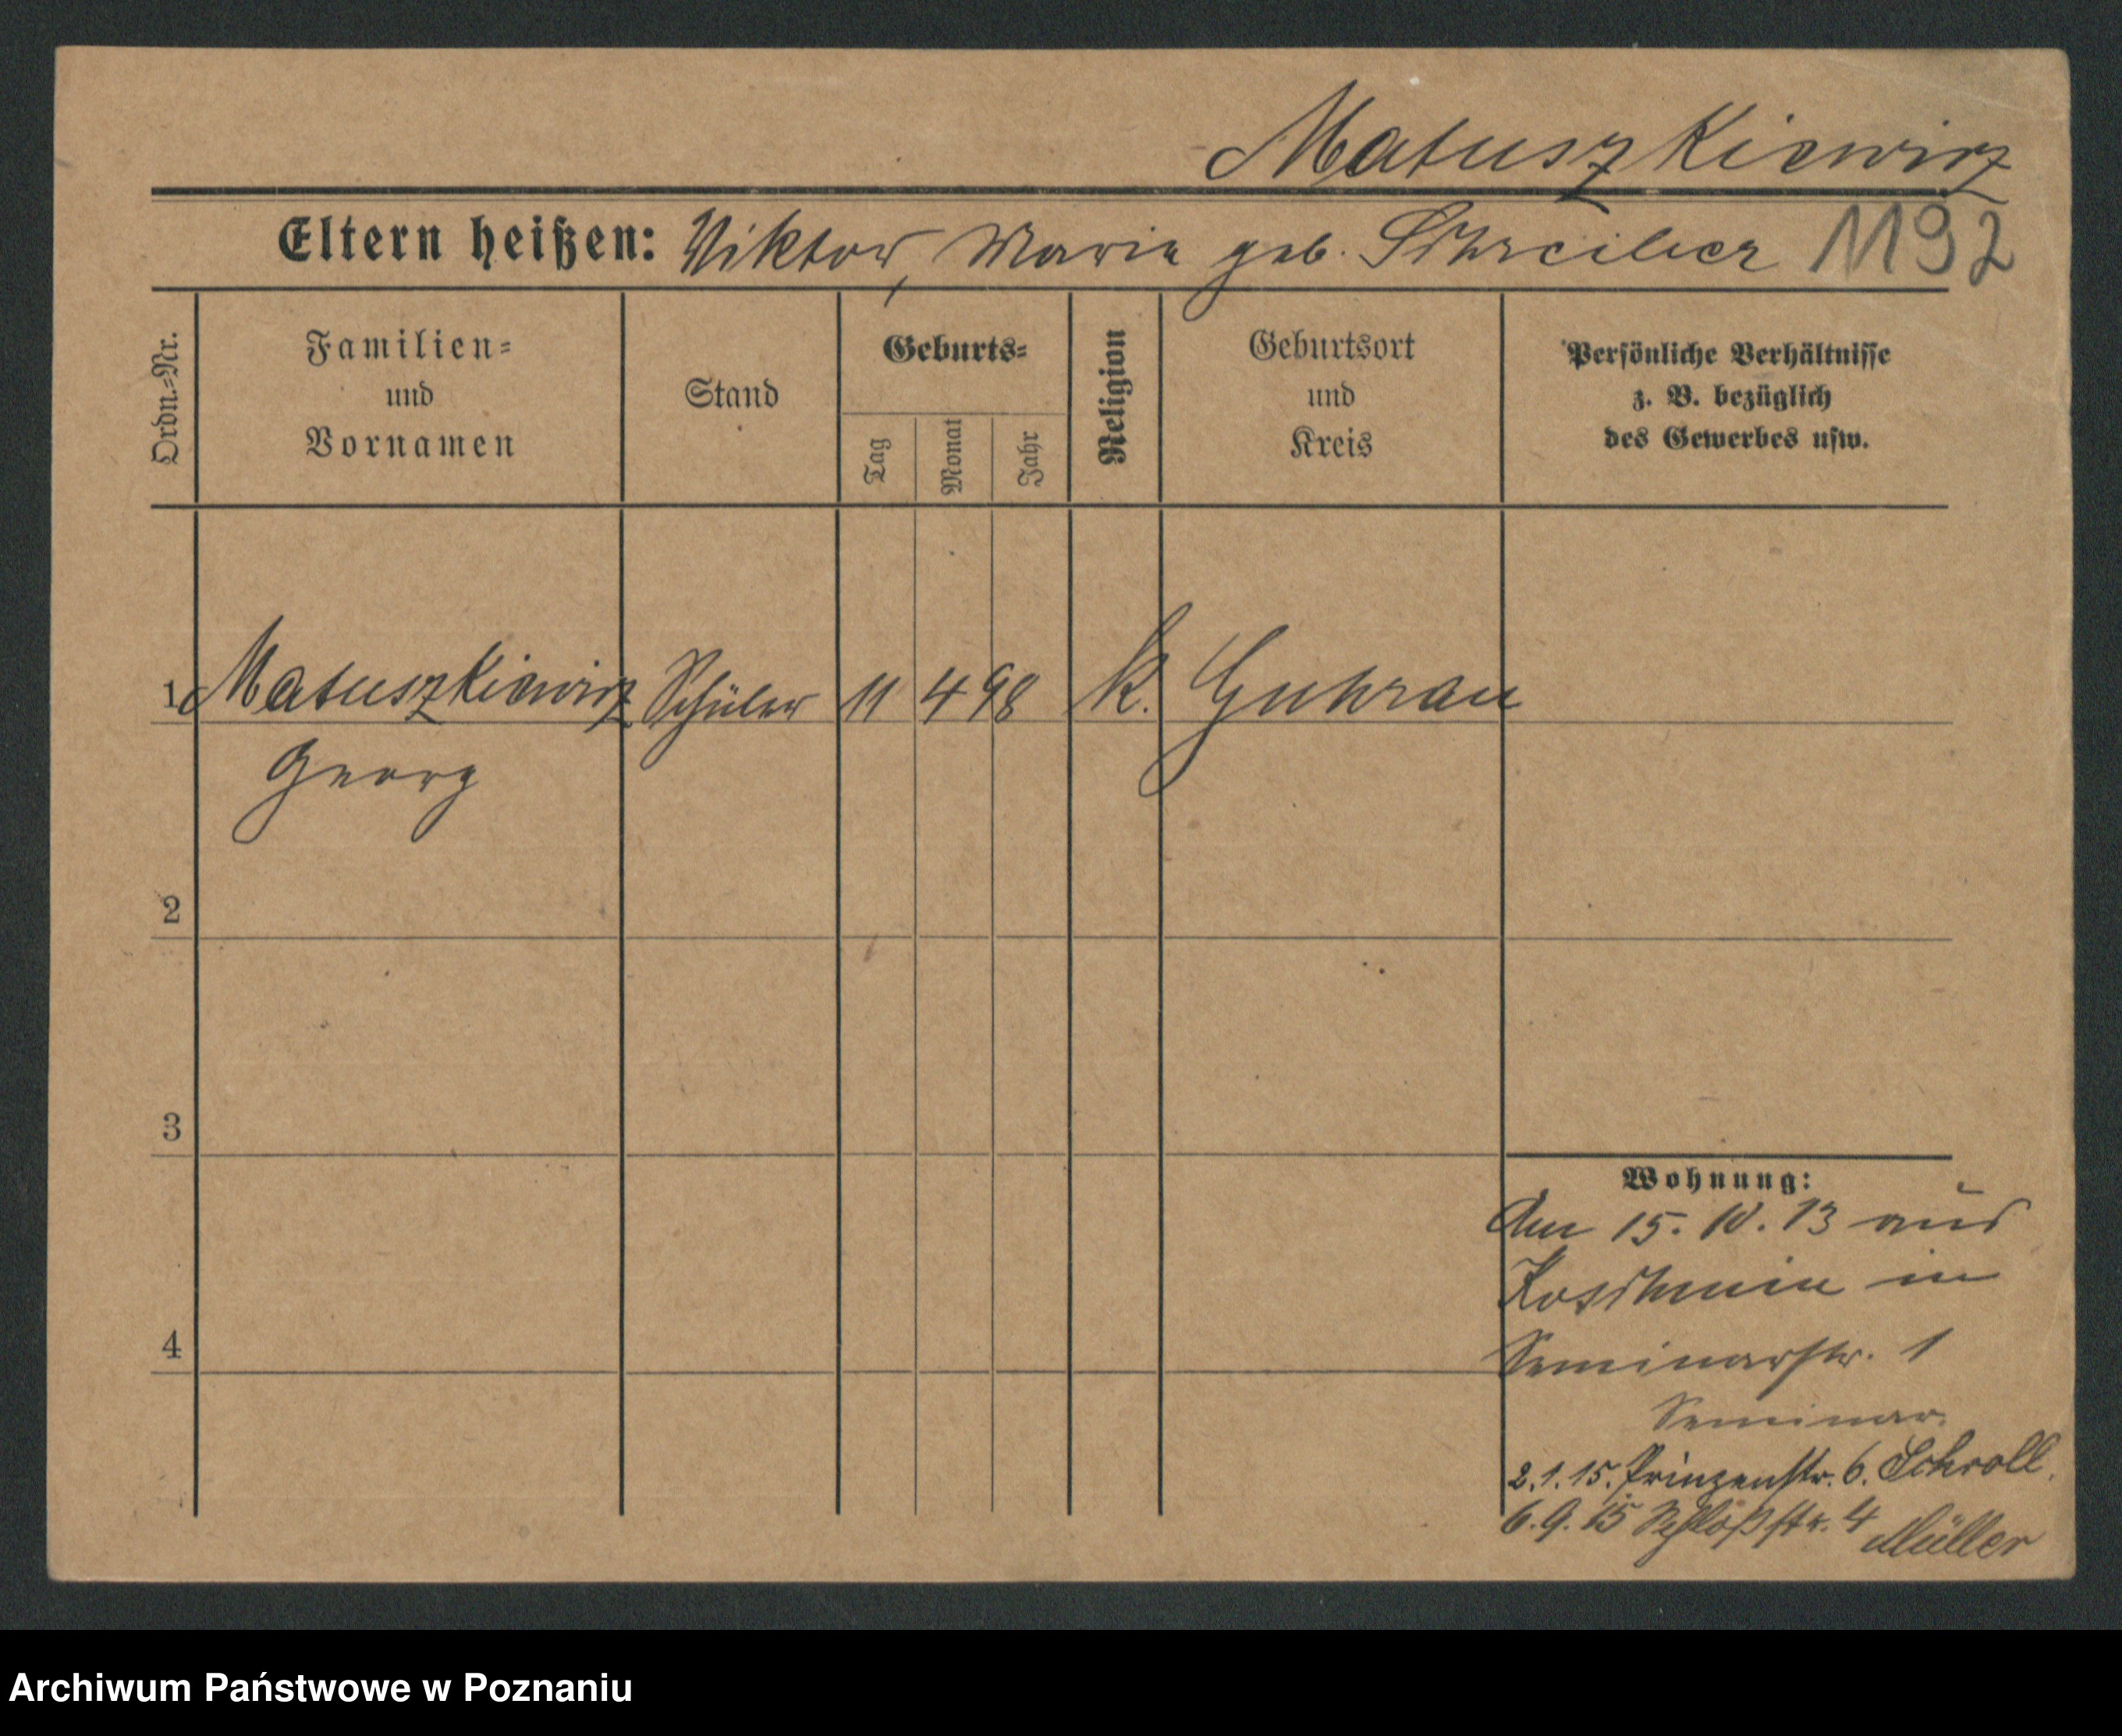 Matuszkiewicz
Eltern heißen: Viktor, Maria geb. Schreiber 1192
Ordn.-Nr.
Familien-
und
Vornamen
Stand
Geburts-
Tag
Monat
Jahr
Religion
Geburtsort
und
Kreis
Persönliche Verhältnisse
z. B. bezüglich
des Gewerbes usw.
1 Matuszkiewicz Schüler 11 4 98 k. Guhrau
Georg
2
3
4
Wohnung:
Am 15. 10. 13 aus
Koschmin in
Seminarstr. 1
Seminar.
2.1.15. Prinzenstr. 6. Schroll.
6.9.15 Schloßstr. 4
Müller
Archiwum Państwowe w Poznaniu